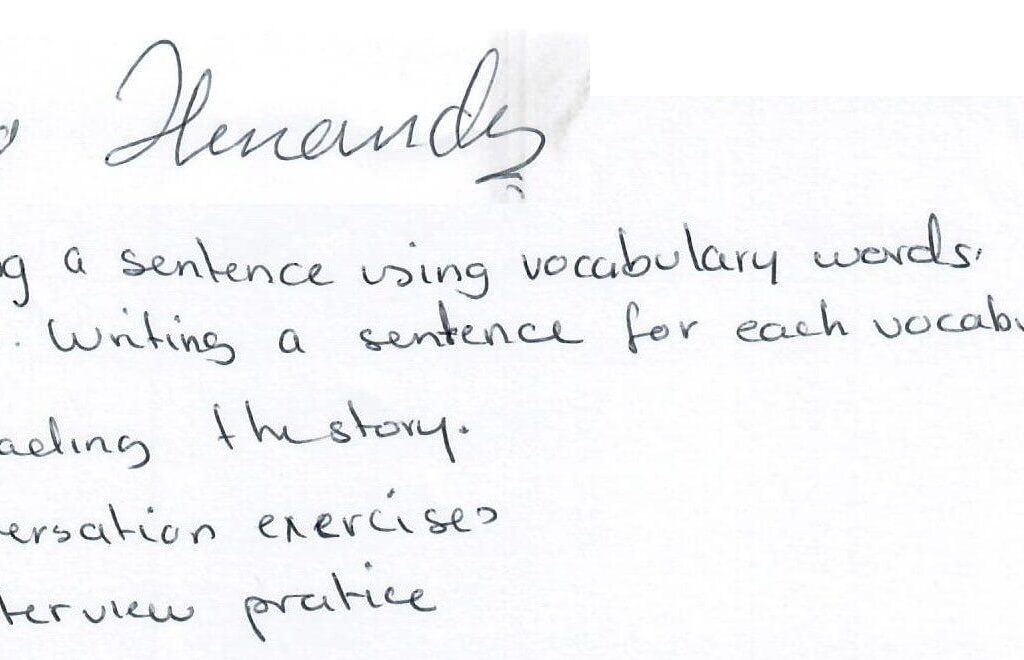 a sentence using vocabulary words.
. Writing a sentence for each vocabu
the story.
ersation exercises
terview pratice